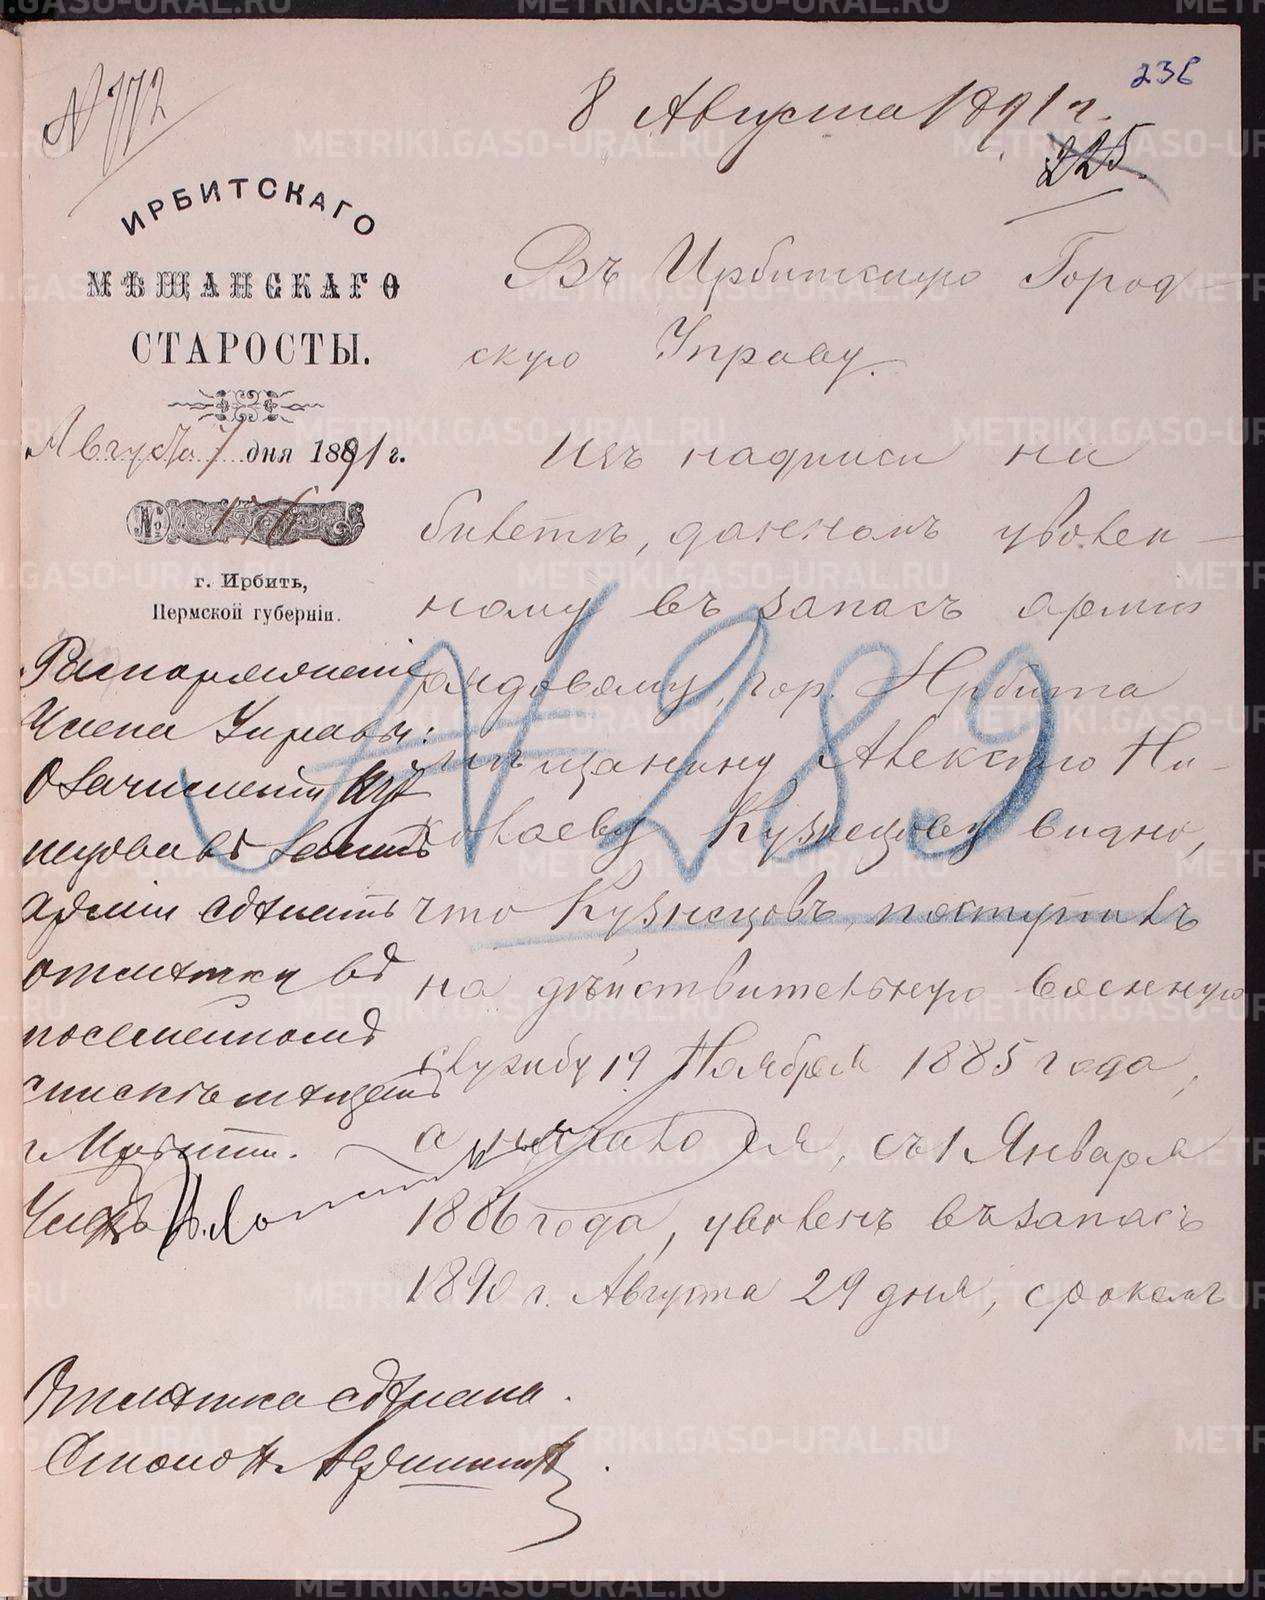 236
N 772
8 Августа 1891 г.
225.
ИРБИТСКАГО
МѢЩАНСКАГО
СТАРОСТЫ.
Августа 7 дня 1891 г.
№ 176
г. Ирбить,
Пермской губерніи.
Въ Ирбитскую Город-
скую Управу.
Изъ надписи на
билетѣ, данномъ уволен-
ному въ запасъ арміи
рядовому, гор. Ирбита
мѣщанину Алексѣю Ни-
колаеву Кузнецову видно,
что Кузнецовъ, поступилъ
на дѣйствительную военную
службу 19 Ноября 1885 года,
а считается, съ 1 Января
1886 года, уволенъ въ запасъ
1890 г. Августа 29 дня, срокомъ
N 289
Распоряженіе
Члена Управы:
О зачисленіи Куз-
нецова въ запасъ
арміи сдѣлать
отмѣтку въ
посемейномъ
спискѣ мѣщанъ
г. Ирбити.
Членъ
Отмѣтка сдѣлана.
Столон.
METRIKI.GASO-URAL.RU